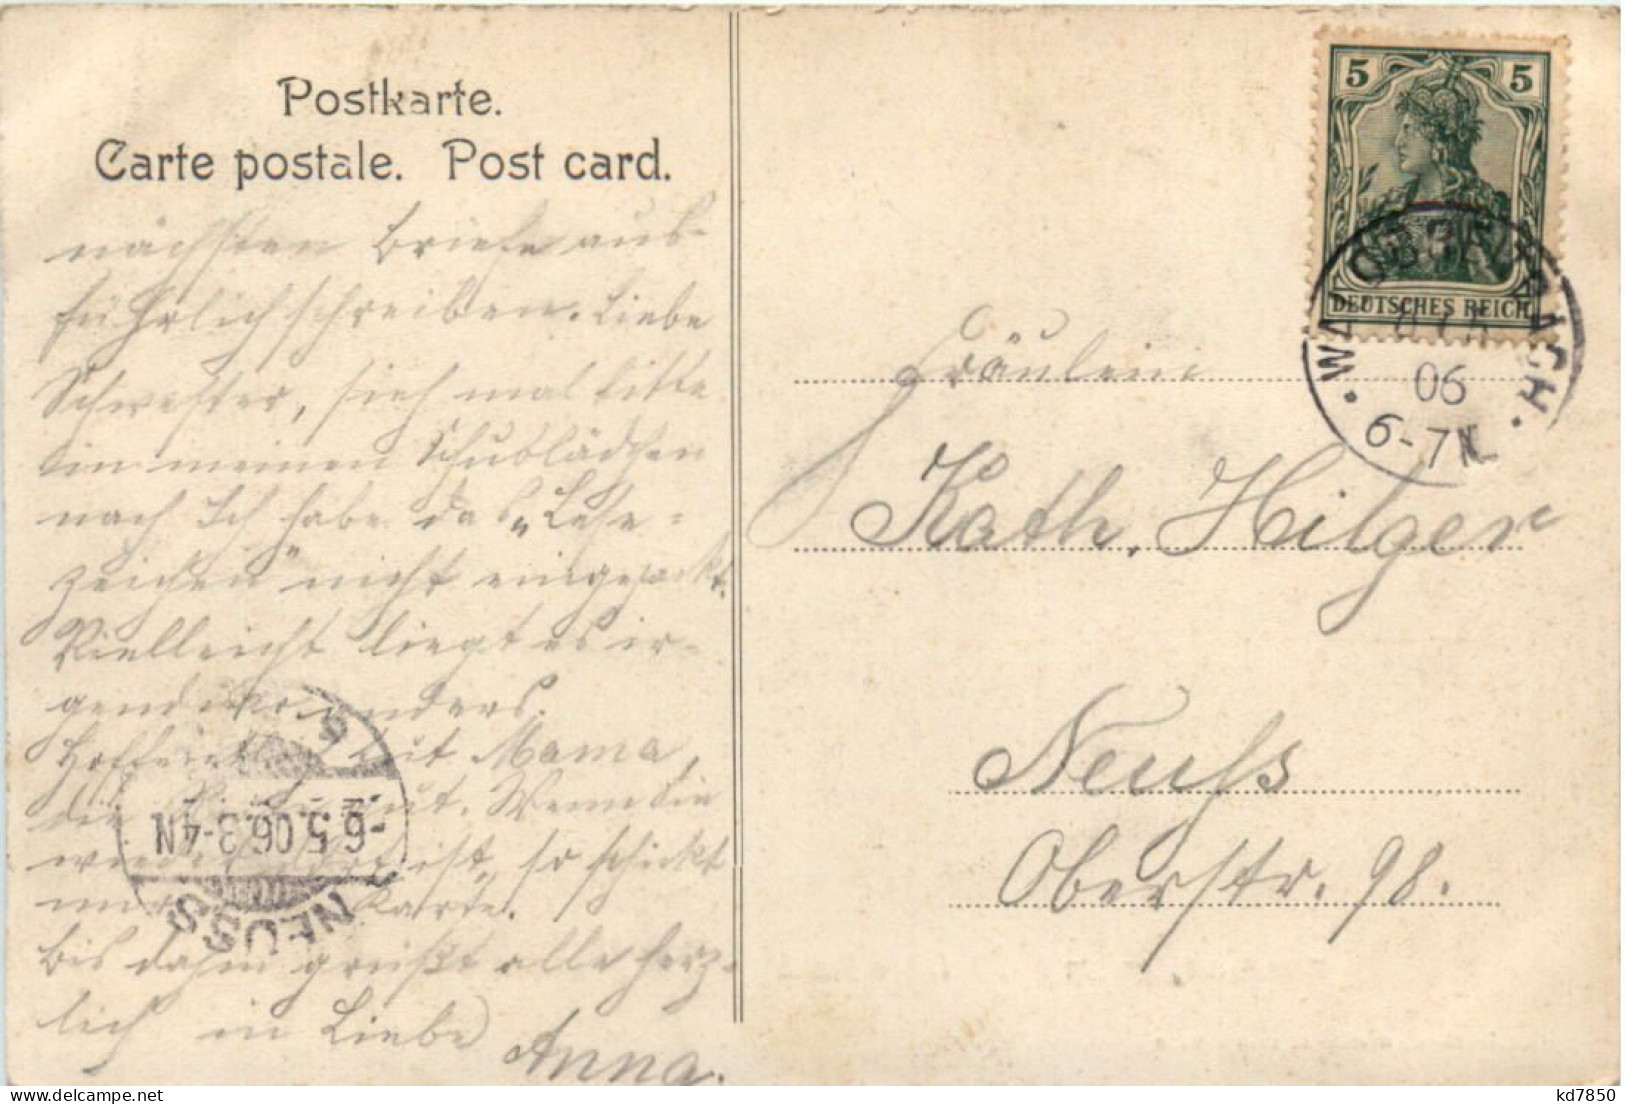 Postkarte.
Carte postale. Post card.
nächsten Briefe aus-
führlich schreiben. Liebe
Schwester, sieh mal bitte
in meinen Schublädchen
nach Ich habe das „Lese-
zeichen" nicht eingepackt.
Vielleicht liegt es ir-
gendwo anders.
Hoffentl. tut Mama,
die gut. Wenn Sie
wieder ist, so schickt
mir Karte.
Bis dahin grüßt alle herz-
lich in Liebe
Anna.
5 5
DEUTSCHES REICH
WALDBREITBACH
06
6-7N
Fräulein
Kath. Hilger
Neuss
Oberstr. 98.
NEUSS
-6.5.06.3-4N
kd7850